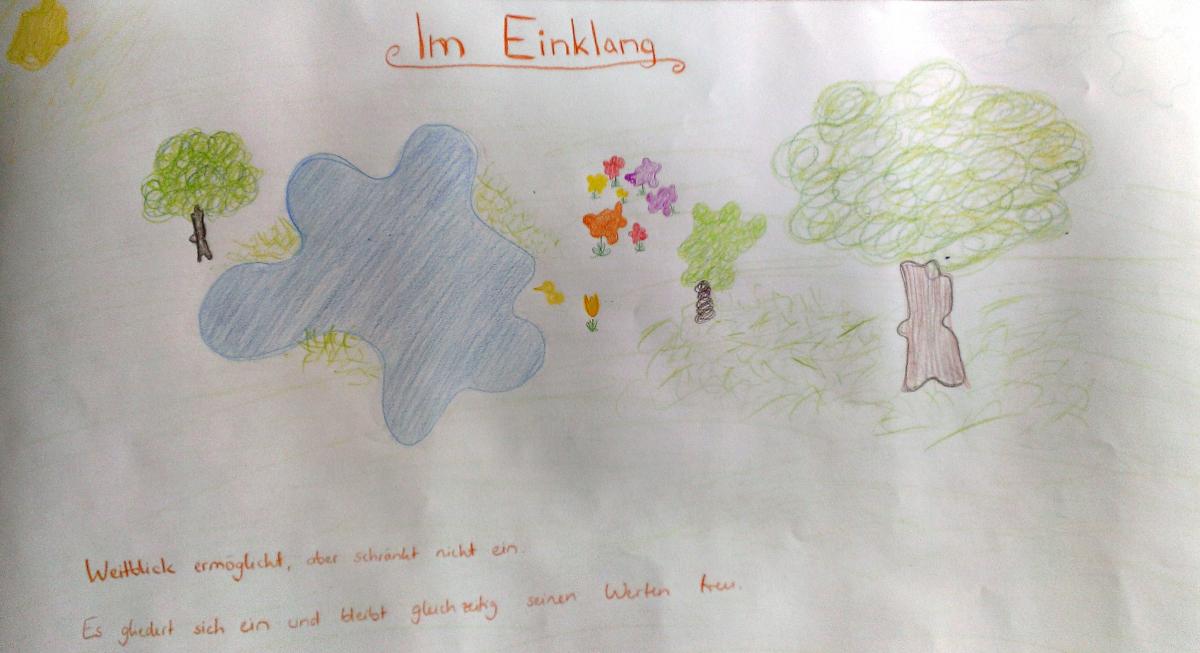 Im Einklang
Weitblick ermöglicht, aber schränkt nicht ein.
Es gliedert sich ein und bleibt gleichzeitig seinen Werten treu.